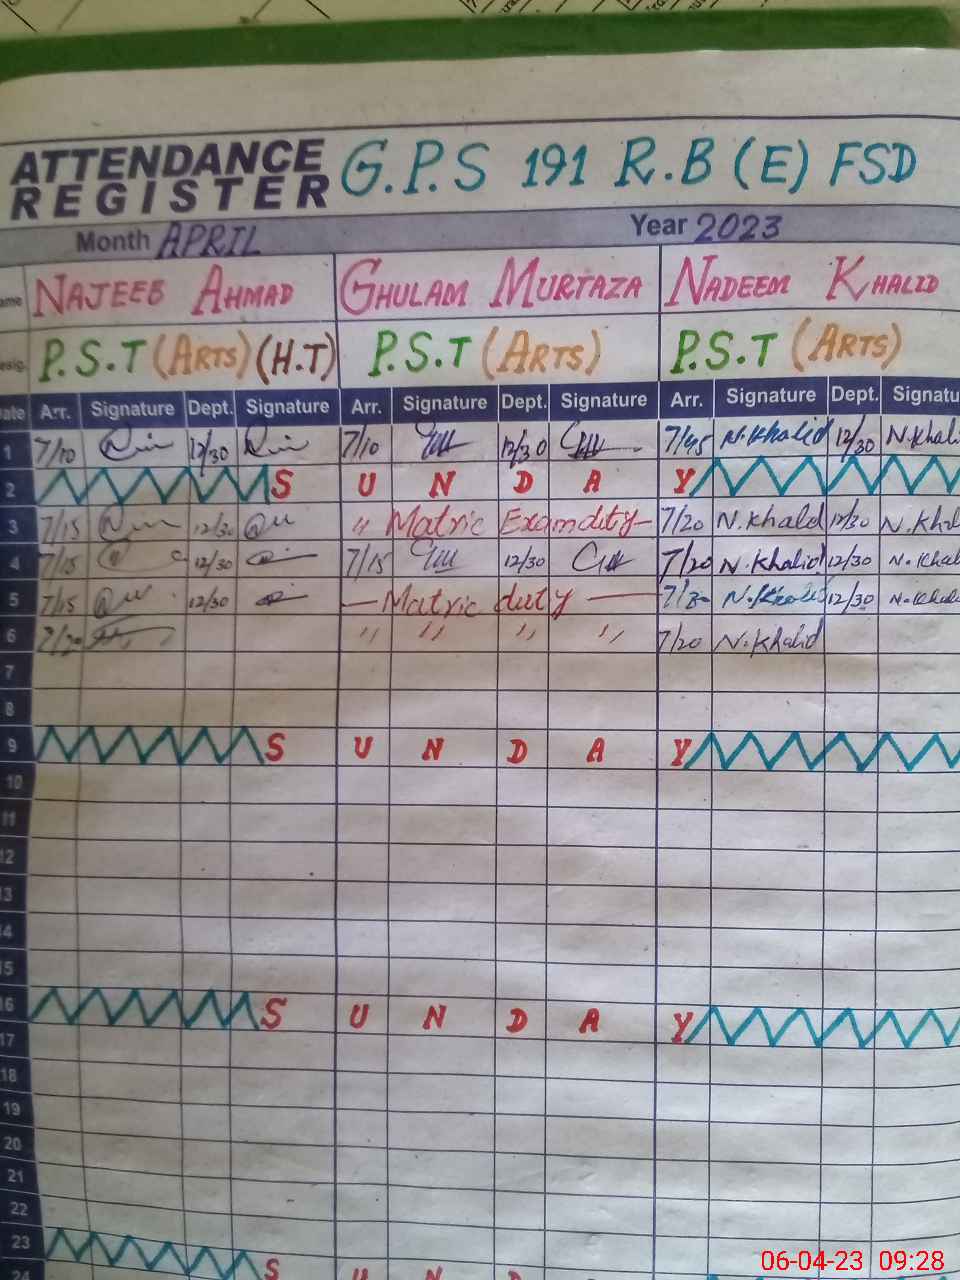 ATTENDANCE REGISTER G.P.S 191 R.B (E) FSD
Month APRIL Year 2023
ame NAJEEB AHMAD GHULAM MURTAZA NADEEM KHALID
esig. P.S.T (ARTS) (H.T) P.S.T (ARTS) P.S.T (ARTS)
ate Arr. Signature Dept. Signature Arr. Signature Dept. Signature Arr. Signature Dept. Signatu
1 7/10 12/30 7/10 12/30 7/45 N.Khalid 12/30 N.Khali
2 S U N D A Y
3 7/15 12/30 " Matric Exam duty 7/20 N.Khalid 12/30
4 7/15 12/30 7/15 12/30 7/20 N.Khalid 12/30 N.Khal
5 7/15 12/30 Matric duty N.Khalid 12/30 N.Khal
6 7/20 " " " " 7/20 N.Khalid
7
8
9 S U N D A Y
10
11
12
13
14
15
16 S U N D A Y
17
18
19
20
21
22
23
24 S U N D
06-04-23 09:28